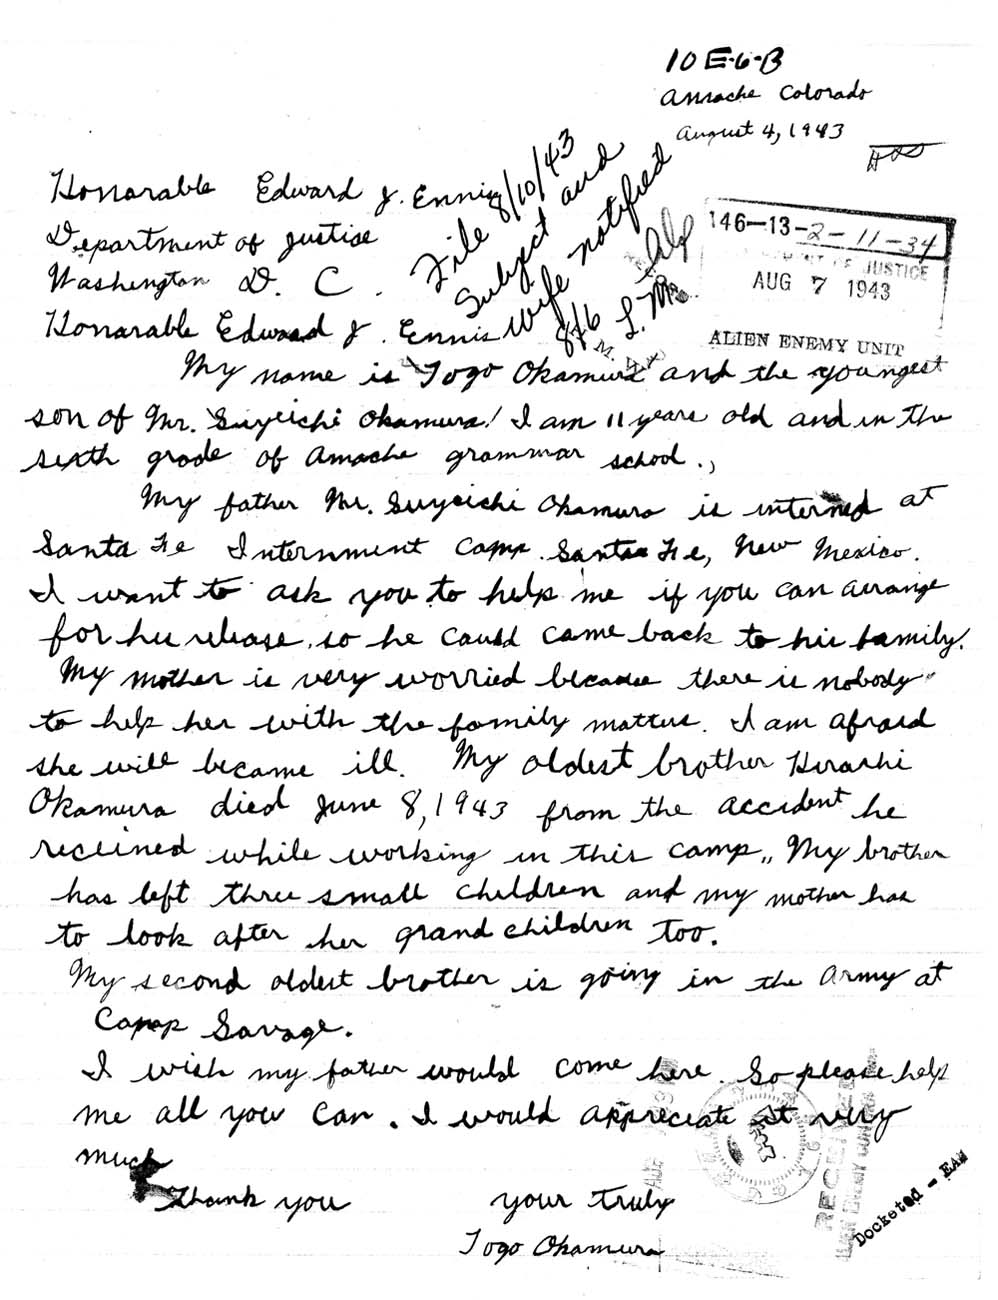 10 E-6-B
Amache Colorado
August 4, 1943
Honorable Edward J. Ennis
Department of Justice
Washington D. C.
Honorable Edward J. Ennis
File 8/10/43
Subject and
Wife notified
8/6
146-13-2-11-34
DEPARTMENT OF JUSTICE
AUG 7 1943
ALIEN ENEMY UNIT
My name is Togo Okamura and the youngest
son of Mr. Suyeichi Okamura! I am 11 years old and in the
sixth grade of Amache grammar school.,
My father Mr. Suyeichi Okamura is interned at
Santa Fe Internment Camp. Santa Fe, New Mexico.
I want to ask you to help me if you can arrange
for his release, so he could come back to his family.
My mother is very worried because there is nobody
to help her with the family matters. I am afraid
she will became ill. My oldest brother Hiroshi
Okamura died June 8, 1943 from the accident he
received while working in this camp,, My brother
has left three small children and my mother has
to look after her grandchildren too.
My second oldest brother is going in the Army at
Camp Savage.
I wish my father would come here. So please help
me all you can. I would appreciate it very
much
Thank you your truly
Togo Okamura
Docketed - EAM